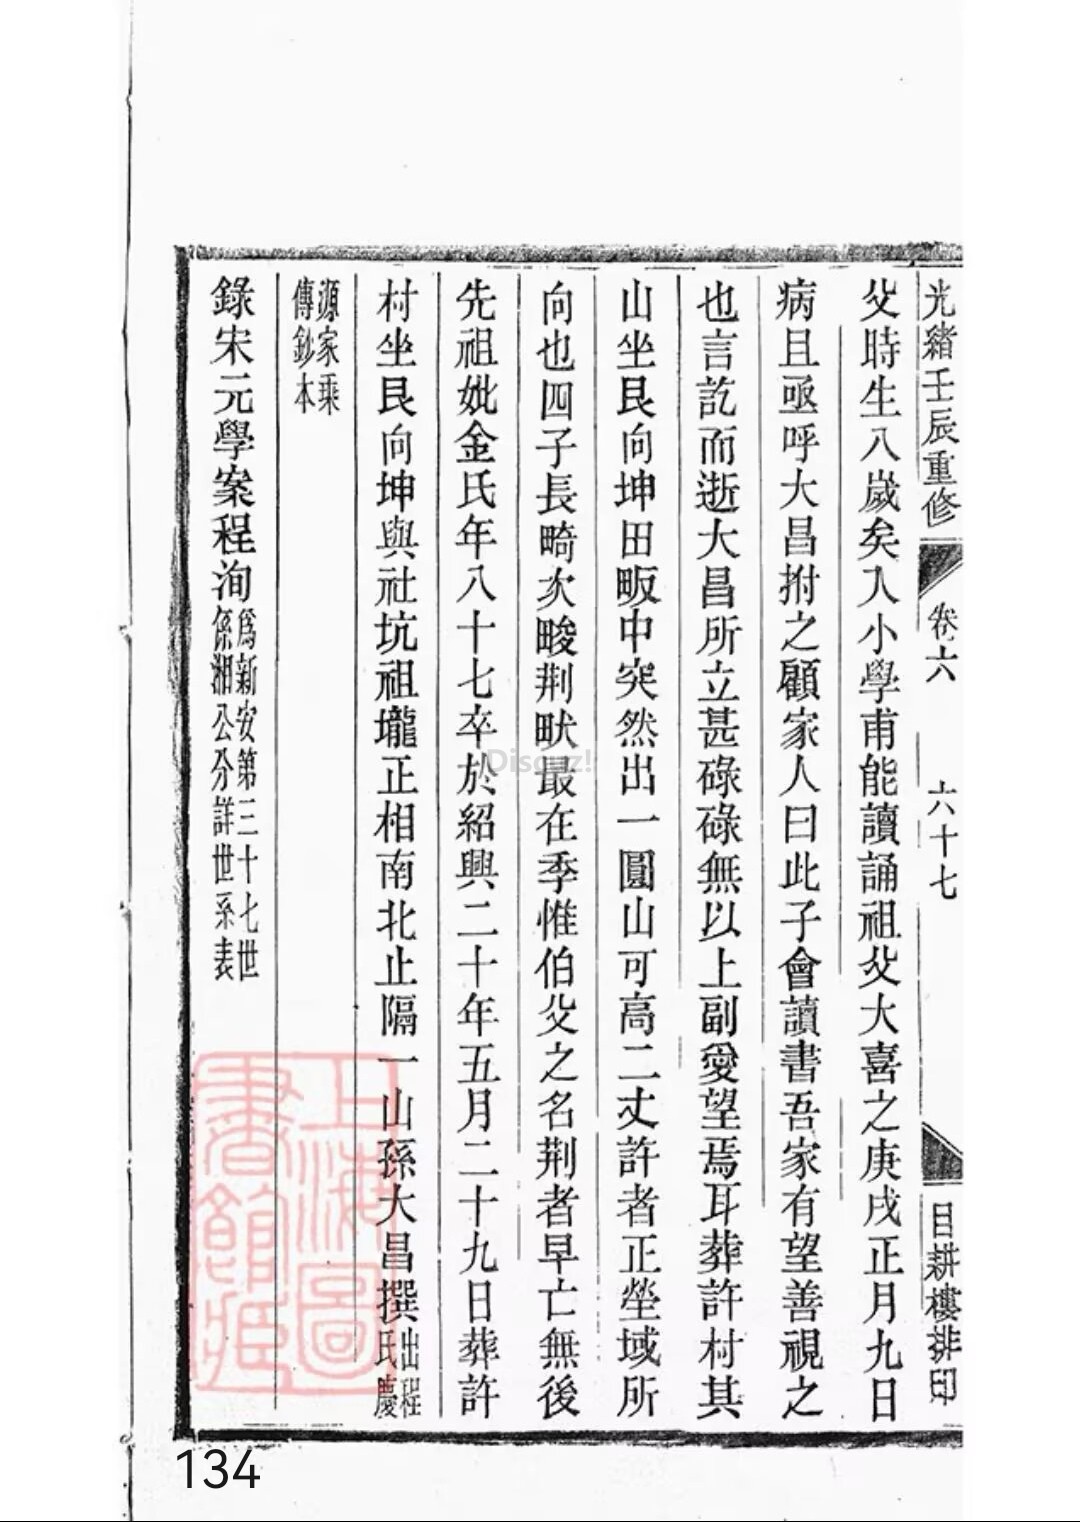 光緒壬辰重修
卷六
六十七
目耕樓排印
父時生八歲矣入小學甫能讀誦祖父大喜之庚戌正月九日
病且亟呼大昌拊之顧家人曰此子會讀書吾家有望善視之
也言訖而逝大昌所立甚碌碌無以上副愛望焉耳葬許村其
山坐艮向坤田畈中突然出一圓山可高二丈許者正塋域所
向也四子長畸次畯荆畎最在季惟伯父之名荆者早亡無後
先祖妣金氏年八十七卒於紹興二十年五月二十九日葬許
村坐艮向坤與社坑祖壠正相南北止隔一山孫大昌撰出程
氏慶
源家乘
傳鈔本
錄宋元學案程洵爲新安第三十七世
係湘公分詳世系表
上海圖
書館藏
Discuz!
134